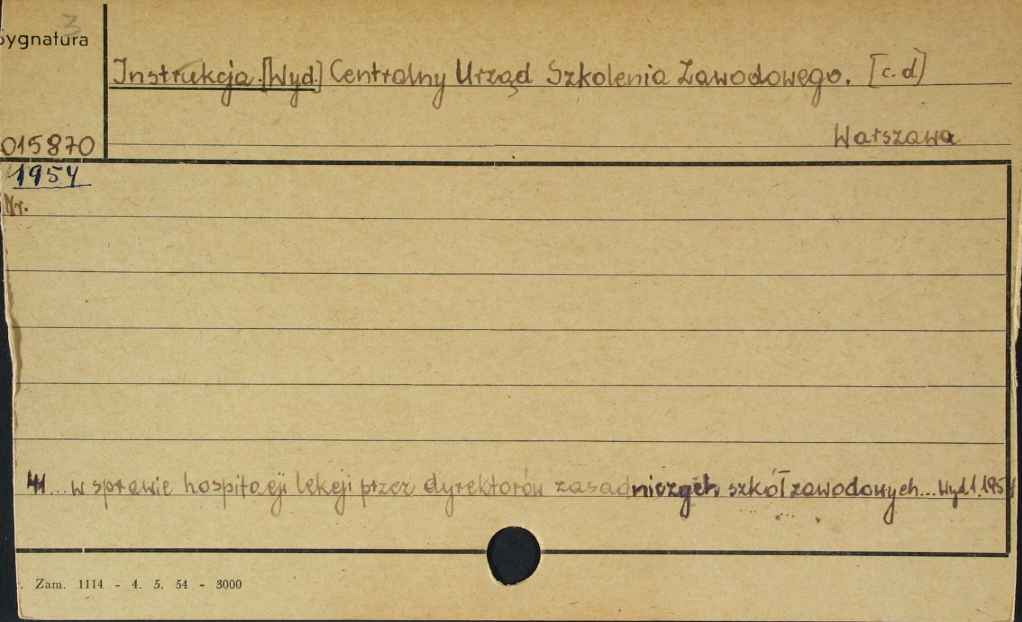 3
Sygnatura
Instrukcja. [Wyd.] Centralny Urząd Szkolenia Zawodowego. [c.d]
015870
Warszawa
1954
Nr.
41 ... w sprawie hospitacji lekcji przez dyrektorów zasadniczych szkół zawodowych... Wyd 1. 1954
Zam. 1114 - 4. 5. 54 - 3000